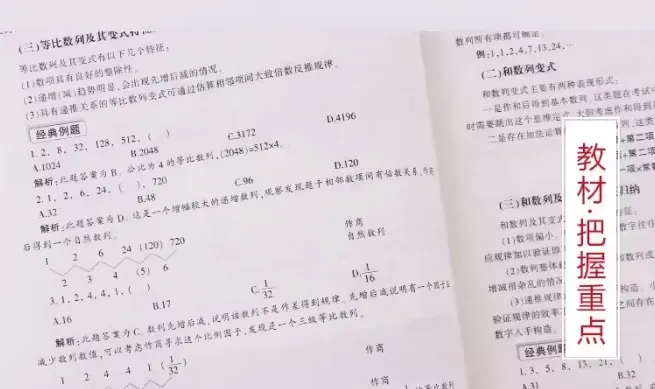 (三)等比数列及其变式特征
等比数列及其变式有以下几个特征:
(1)数项具有良好的整除性。
(2)递增(减)趋势明显,会出现先增后减的情况。
(3)具有递推关系的等比数列变式可通过估算相邻项间大致倍数反推规律。
经典例题
1. 2, 8, 32, 128, 512, ( )
A.1024 B.2048 C.3172 D.4196
解析:此题答案为 B。公比为 4 的等比数列,(2048)=512×4。
2. 1, 2, 6, 24, ( ), 720
A.32 B.48 C.96 D.120
解析:此题答案为 D。这是一个增幅较大的递增数列,观察发现题干相邻数项间有倍数关系,
后得到一个自然数列。
1 2 6 24 (120) 720 作商
2 3 4 (5) 6 自然数列
3. 1, 2, 4, 4, 1, ( )
A.16 B.17 C.1/32 D.1/16
解析:此题答案为 C。数列先增后减,说明该数列不是作差得到规律。先增后减说明有一个因子在
减少数列数值,可以考虑作商寻求这个比例因子,发现是一个三级等比数列。
1 2 4 4 1 (1/32) 作商
作商
数列所有项都可
例:1,1,2,4,7,13,24,…
(二)和数列变式
和数列变式主要有两种表现形式:
一是作和后得到基本数列。这类题在考试中
时需要跳出这个思维定式,大胆考虑作和得到
二是存在加法运算
(三)和数列及 归纳
和数列及其变式
(1)数项偏小。
应规律加以验证即
(2)数列整体
增减很杂乱的情况
(3)递推规律
验证规律的效率
数字入手构造。
经典例题
1. 3, 5, 8, 13, 21, (
A.31 B.32
教材·把握重点